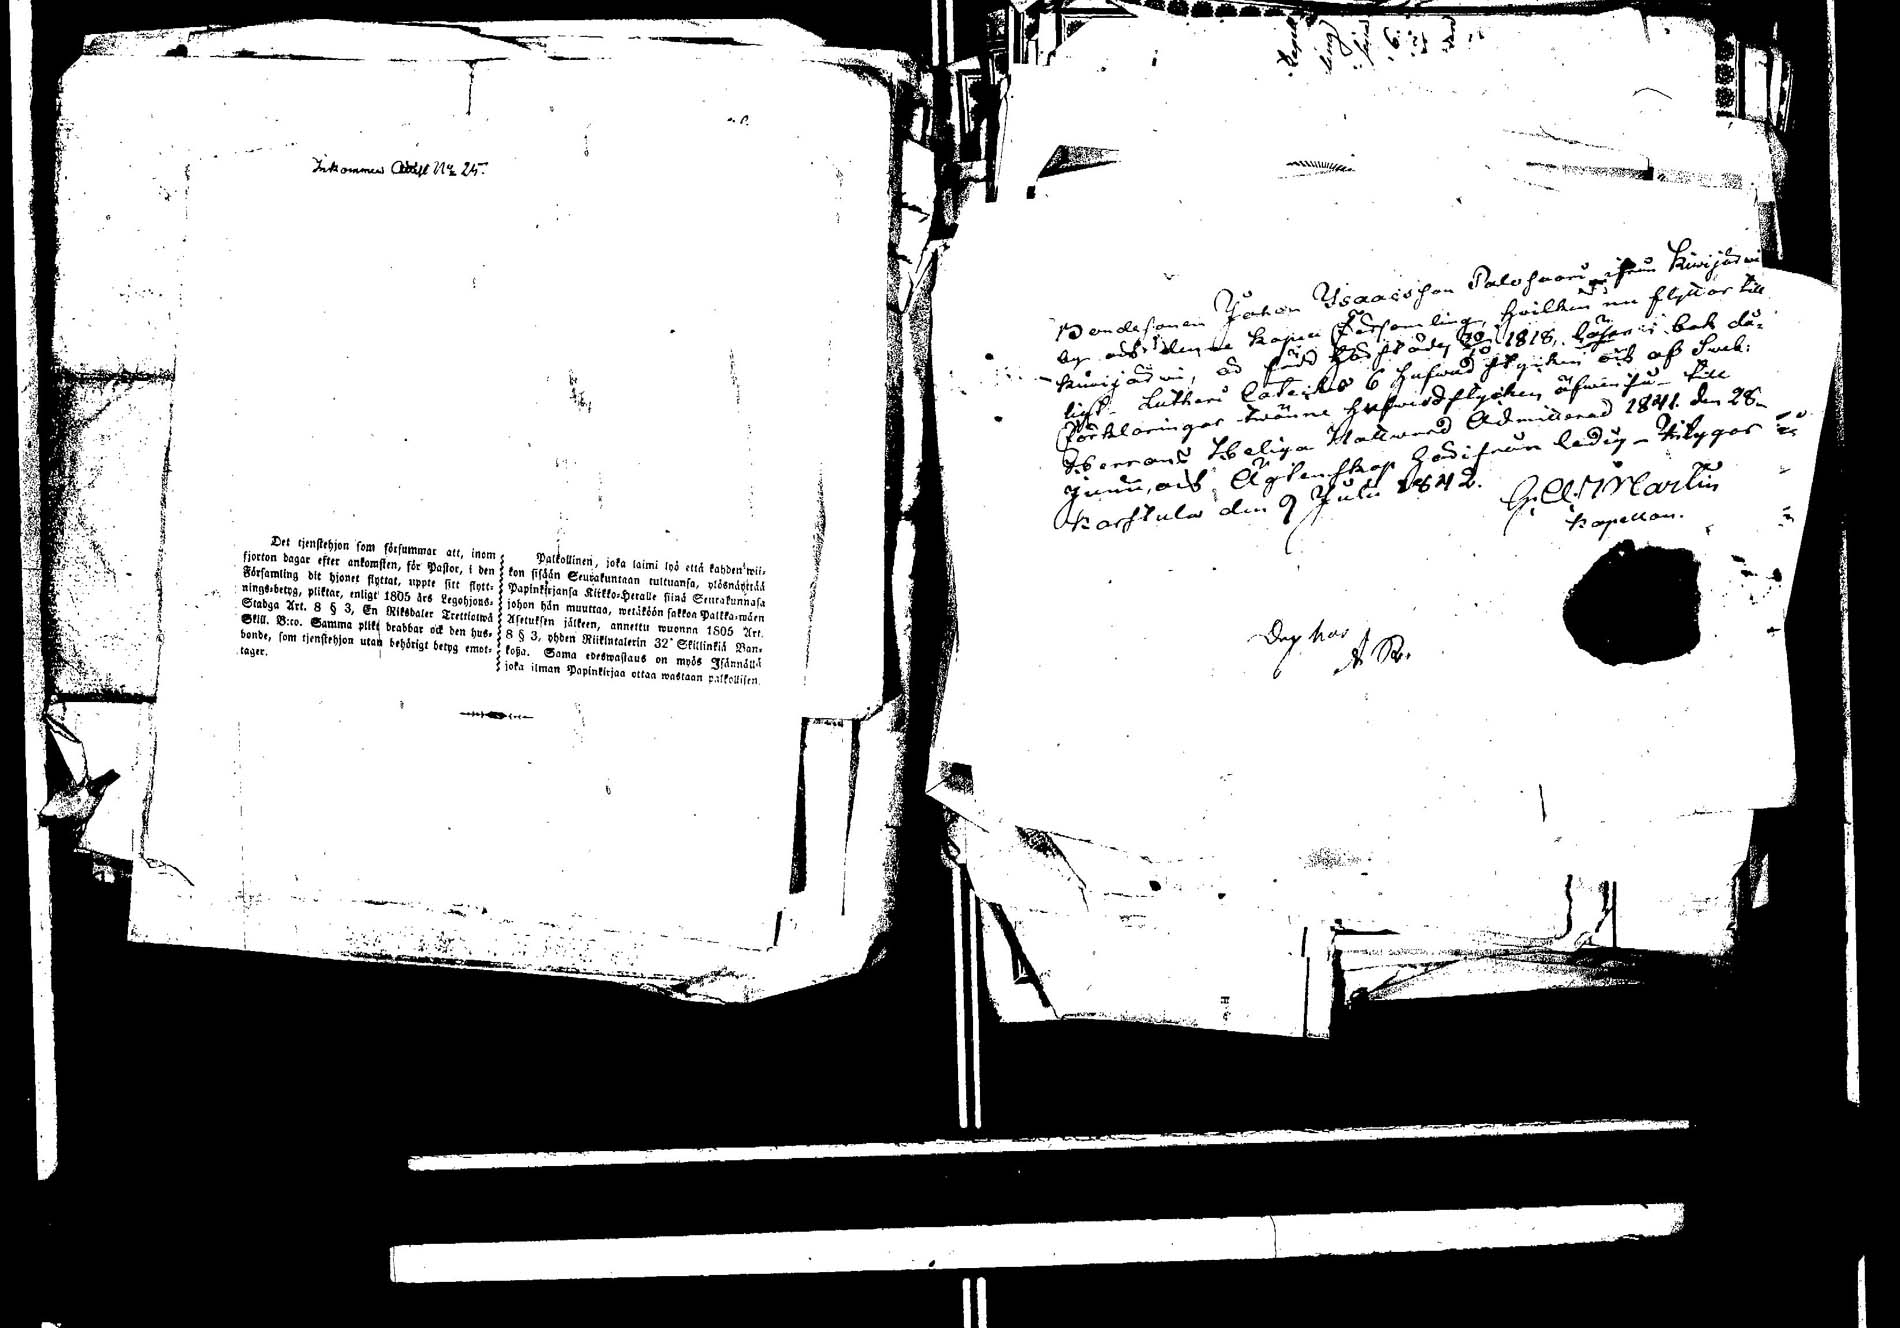 Inkommen Attest No 25.
Det tjenstehjon som försummar att, inom
fjorton dagar efter ankomsten, för Pastor, i den
Församling dit hjonet flyttat, uppte sitt flytt-
nings-betyg, pliktar, enligt 1805 års Legohjons-
Stadga Art. 8 § 3, En Riksdaler Trettiotwå
Skill. B:co. Samma plikt drabbar ock den hus-
bonde, som tjenstehjon utan behörigt betyg emot-
tager.
Palkollinen, joka laimi lyö että kahden wii-
kon sisään Seurakuntaan tultuansa, ylösnäyttää
Papinkirjansa Kirkko-Herralle siinä Seurakunnasa
johon hän muuttaa, wetäköön sakkoa Palkka-wäen
Asetuksen jälkeen, annettu wuonna 1805 Art.
8 § 3, yhden Riikintalerin 32 Skillinkiä Ban-
koßa. Sama edeswastaus on myös Isännällä
joka ilman Papinkirjaa ottaa wastaan palkollisen.
Bondesonen Johan Isaacsson Palosaari ifrån Kiwijärwi
denna Kapell Församling, hvilken nu flyttar till
Kiwijärwi, är född 1818, läser i bok
Lutheri Cateches 6 hufwud stycken och af Sweb:
Förklaringar twänne hufwudstycken äfwen
Herrans Heliga Nattward Admitterad 1841 den 28
Junii, och Ägtenskap härifrån ledig – betygar
Karstula den 9 Julii 1842.
Martin
Kapellan.